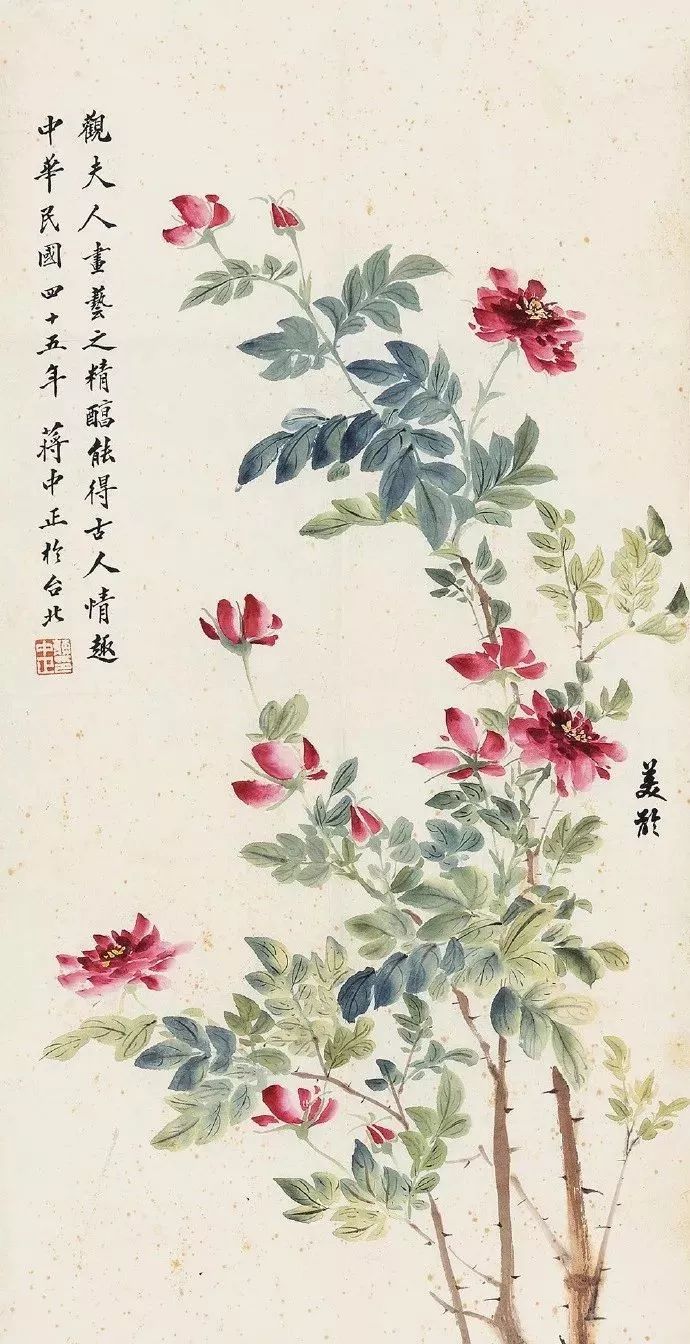 觀夫人畫藝之精醕能得古人情趣
中華民國四十五年 蔣中正於台北
美齡